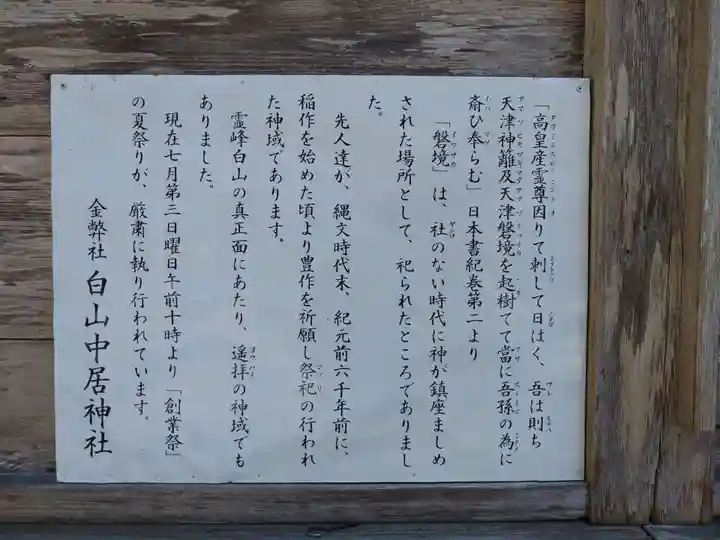 「高皇産霊尊因りて刺して日はく、吾は則ち
天津神籬及天津磐境を起樹てて當に吾孫の為に
斎ひ奉らむ」日本書紀巻第二より
「磐境」は、社のない時代に神が鎮座ましめ
された場所として、祀られたところでありまし
た。
先人達が、縄文時代末、紀元前六千年前に、
稲作を始めた頃より豊作を祈願し祭祀の行われ
た神域であります。
霊峰白山の真正面にあたり、遥拝の神域でも
ありました。
現在七月第三日曜日午前十時より「創業祭」
の夏祭りが、厳粛に執り行われています。
金弊社 白山中居神社